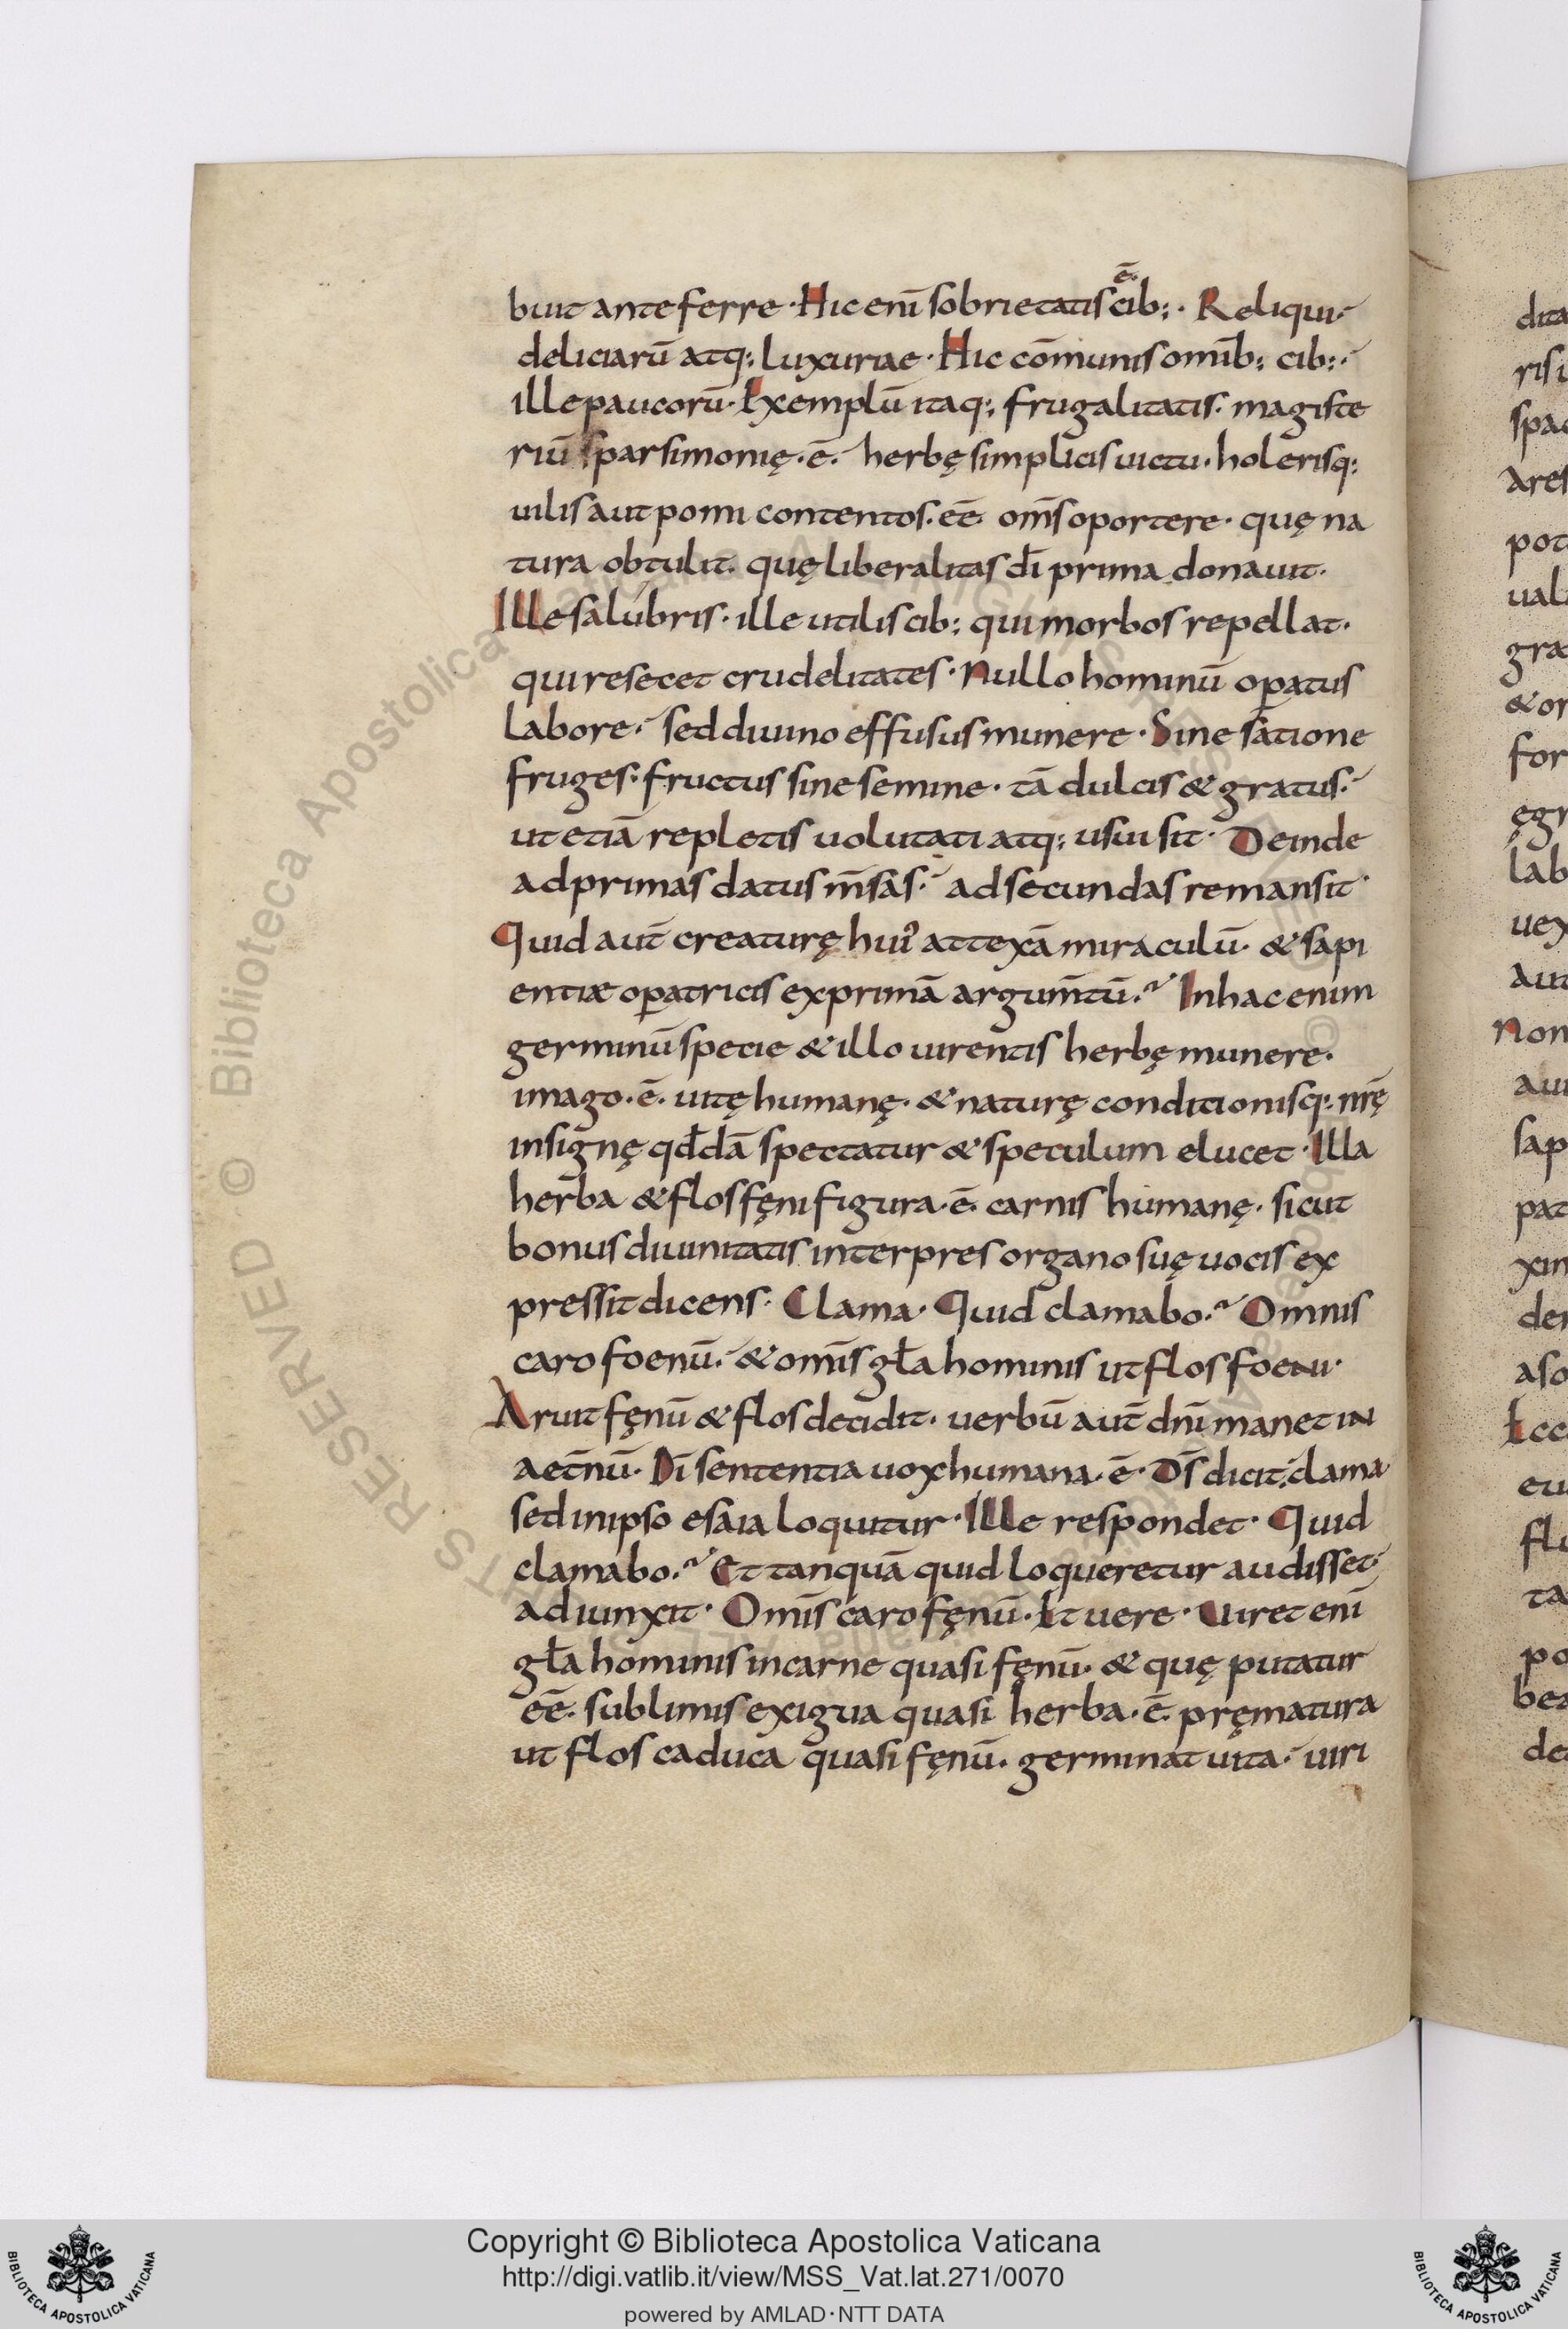 buit anteferre · Hic enī sobrietatis ē cib; · Reliqui
deliciarū atq; luxuriae · Hic cōmunis omīb; cib; ·
ille paucorū · Exemplū itaq; frugalitatis · magiste
riū parsimonię · ē · herbę simplicis uictu · holerisq;
uilis aut pomi contentos · eē oms̄ oportere · quę na
tura obtulit · quę liberalitas dī prima donauit ·
Ille salubris · ille utilis cib; qui morbos repellat ·
qui resecet crudelitates · Nullo hominū oꝑatus
labore · sed diuino effusus munere · Sine satione
fruges · fructus sine semine · tā dulcis & gratus ·
ut etiā repletis uolutati atq; usui sit · Deinde
ad primas datus m̄sas · ad secundas remansit ·
Quid aut̄ creaturę hui᾽ attexā miraculū · & sapi
entiæ oꝑatricis exprimā argum̄tū · In hac enim
germinū specie & illo uirentis herbę munere ·
imago · ē · uitę humanę · & naturę conditionisq; nr̄ę
insignę qd̄dā spectatur & speculum elucet · Illa
herba & flos fęni figura · ē · carnis humanę · sicut
bonus diuinitatis interpres organo suę uocis ex
pressit dicens · Clama · Quid clamabo · Omnis
caro foenū · & omīs gła hominis ut flos foeni ·
Aruit fęnū & flos decidit · uerbū aut̄ dnī manet in
aet̄nū · Dī sententia uox humana · ē · Ds̄ dicit · clama
sed in ipso esaia loquitur · Ille respondet · Quid
clamabo · Et tanquā quid loqueretur audisset ·
adiunxit · Omīs caro fęnū · Et uere · Uiret enī
gła hominis in carne quasi fęnū · & quę putatur
eē · sublimis exigua quasi herba · ē · pręmatura
ut flos caduca quasi fęnū · germinat uita · uiri
Copyright © Biblioteca Apostolica Vaticana
http://digi.vatlib.it/view/MSS_Vat.lat.271/0070
powered by AMLAD · NTT DATA